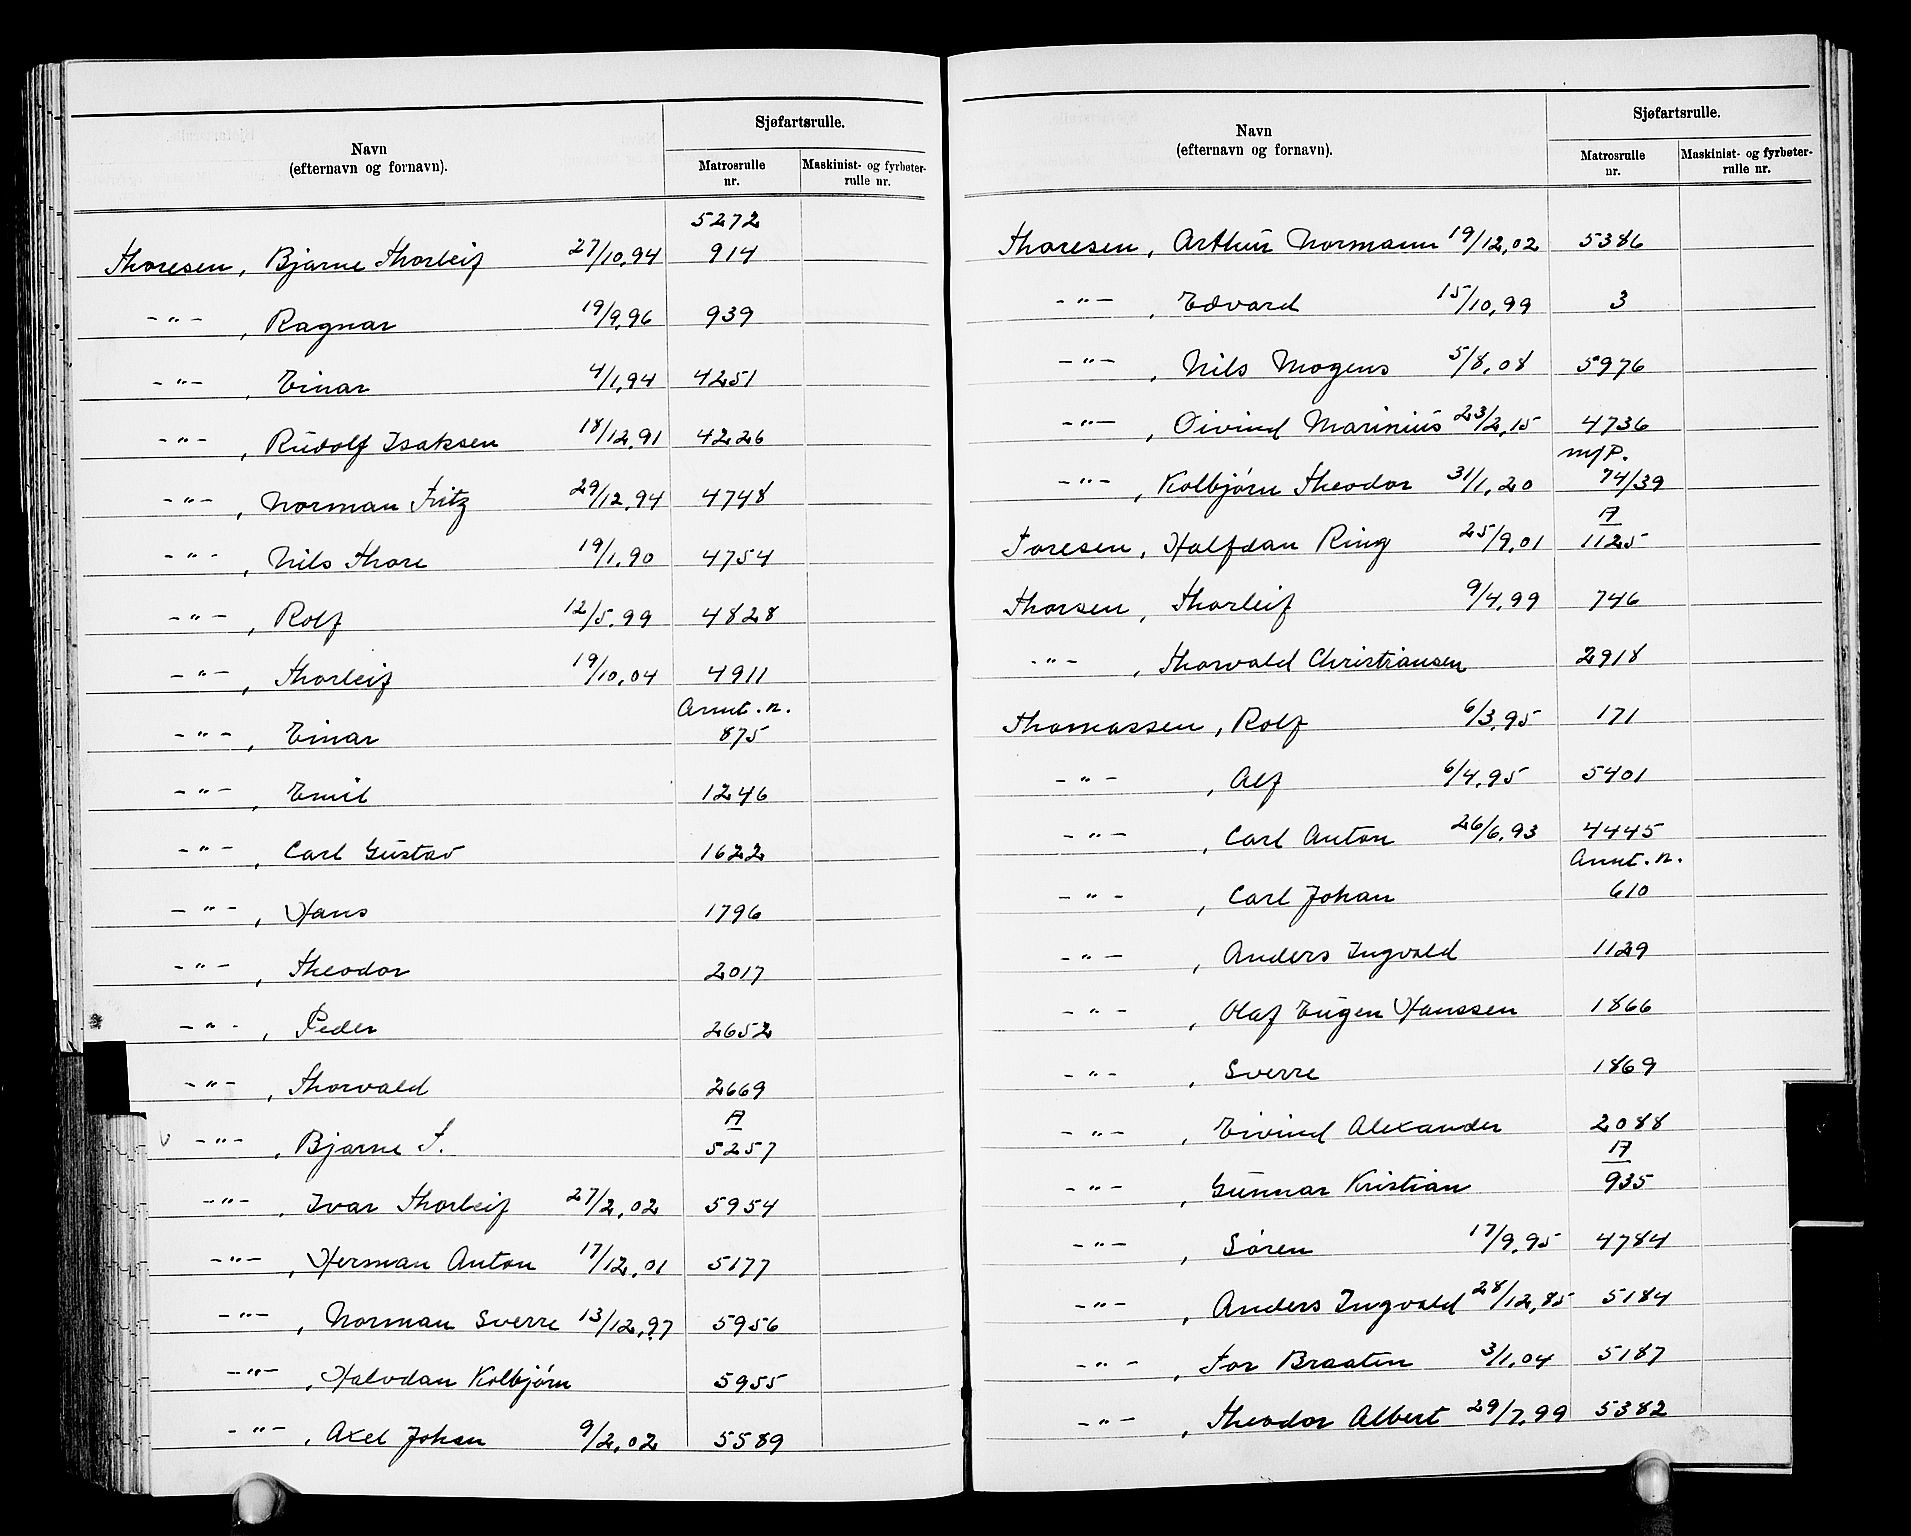 Navn
(efternavn og fornavn).
Sjøfartsrulle.
Matrosrulle nr.
Maskinist- og fyrbøter-rulle nr.
5272
Thoresen, Bjarne Thorleif 27/10.94 914
-"- , Ragnar 19/9.96 939
-"- , Einar 4/1.94 4251
-"- , Rudolf Isaksen 18/12.91 4226
-"- , Norman Fritz 29/12.94 4748
-"- , Nils Thore 19/1.90 4754
-"- , Rolf 12/5.99 4828
-"- , Thorleif 19/10.04 4911
Annt. n.
-"- , Einar 875
-"- , Emil 1246
-"- , Carl Gustav 1622
-"- , Hans 1796
-"- , Theodor 2017
-"- , Peder 2652
-"- , Thorvald 2669
A
v -"- , Bjarne T. 5257
-"- , Ivar Thorleif 27/2.02 5954
-"- , Herman Anton 17/12.01 5177
-"- , Norman Sverre 13/12.97 5956
-"- , Halvdan Kolbjørn 5955
-"- , Axel Johan 9/2.02 5589
Navn
(efternavn og fornavn).
Sjøfartsrulle.
Matrosrulle nr.
Maskinist- og fyrbøter-rulle nr.
Thoresen, Arthur Normann 19/12.02 5386
-"- , Edvard 15/10.99 3
-"- , Nils Mogens 5/8.08 5976
-"- , Oivind Marinius 23/2.15 4736
m/P.
-"- , Kolbjørn Theodor 31/1.20 74/39
A
Toresen, Halfdan Ring 25/9.01 1125
Thorsen, Thorleif 9/4.99 746
-"- , Thorvald Christiansen 2918
Thomassen, Rolf 6/3.95 171
-"- , Alf 6/4.95 5401
-"- , Carl Anton 26/6.93 4445
Annt. n.
-"- , Carl Johan 610
-"- , Anders Ingvald 1129
-"- , Olaf Eugen Hanssen 1866
-"- , Sverre 1869
-"- , Eivind Alexander 2088
A
-"- , Gunnar Kristian 935
-"- , Søren 17/9.95 4784
-"- , Anders Ingvald 28/12.85 5184
-"- , Tor Braaten 3/1.04 5187
-"- , Theodor Albert 29/7.99 5382